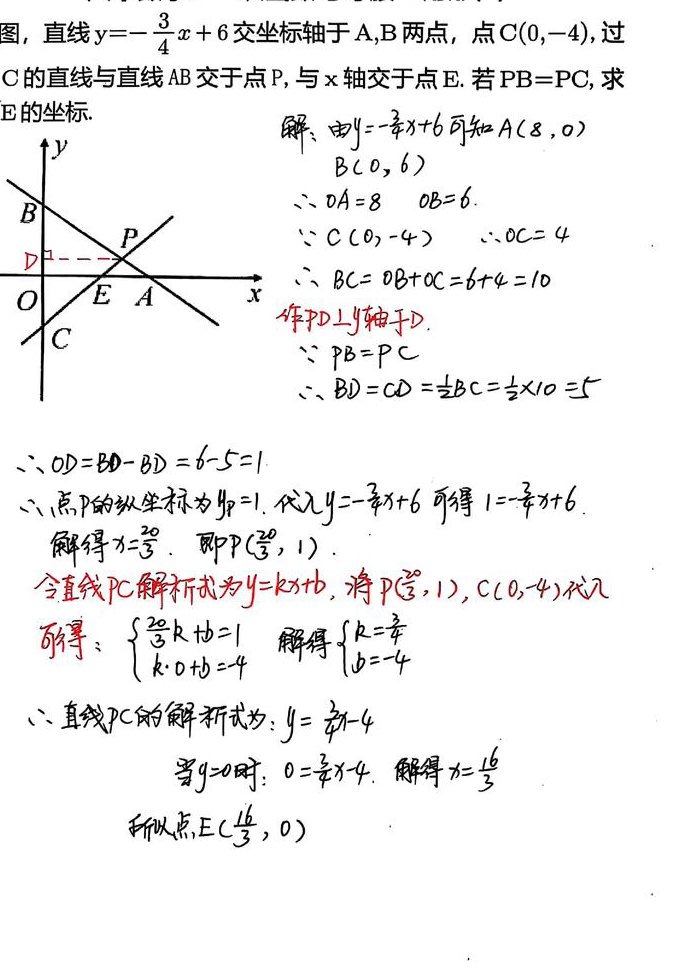 图, 直线 y=-3/4x+6 交坐标轴于 A,B 两点, 点 C(0,-4), 过
C 的直线与直线 AB 交于点 P, 与 x 轴交于点 E. 若 PB=PC, 求
E 的坐标.
y
B
P
D
O
E
A
x
C
解: 由y=-3/4x+6 可知 A(8,0)
B(0,6)
∴ OA=8 OB=6.
∵ C(0,-4) ∴OC=4
∴ BC=OB+OC=6+4=10
作PD⊥y轴于D.
∵ PB=PC
∴ BD=CD=1/2BC=1/2×10=5
∴ OD=BO-BD=6-5=1
∴ 点P的纵坐标为yP=1. 代入y=-3/4x+6 可得 1=-3/4x+6.
解得x=20/3. 即P(20/3, 1).
令直线PC解析式为y=kx+b, 将P(20/3,1), C(0,-4)代入
可得: { 20/3k+b=1 解得 { k=3/4
k·0+b=-4 b=-4
∴ 直线PC的解析式为: y=3/4x-4
当y=0时: 0=3/4x-4. 解得x=16/3
所以点E(16/3, 0)